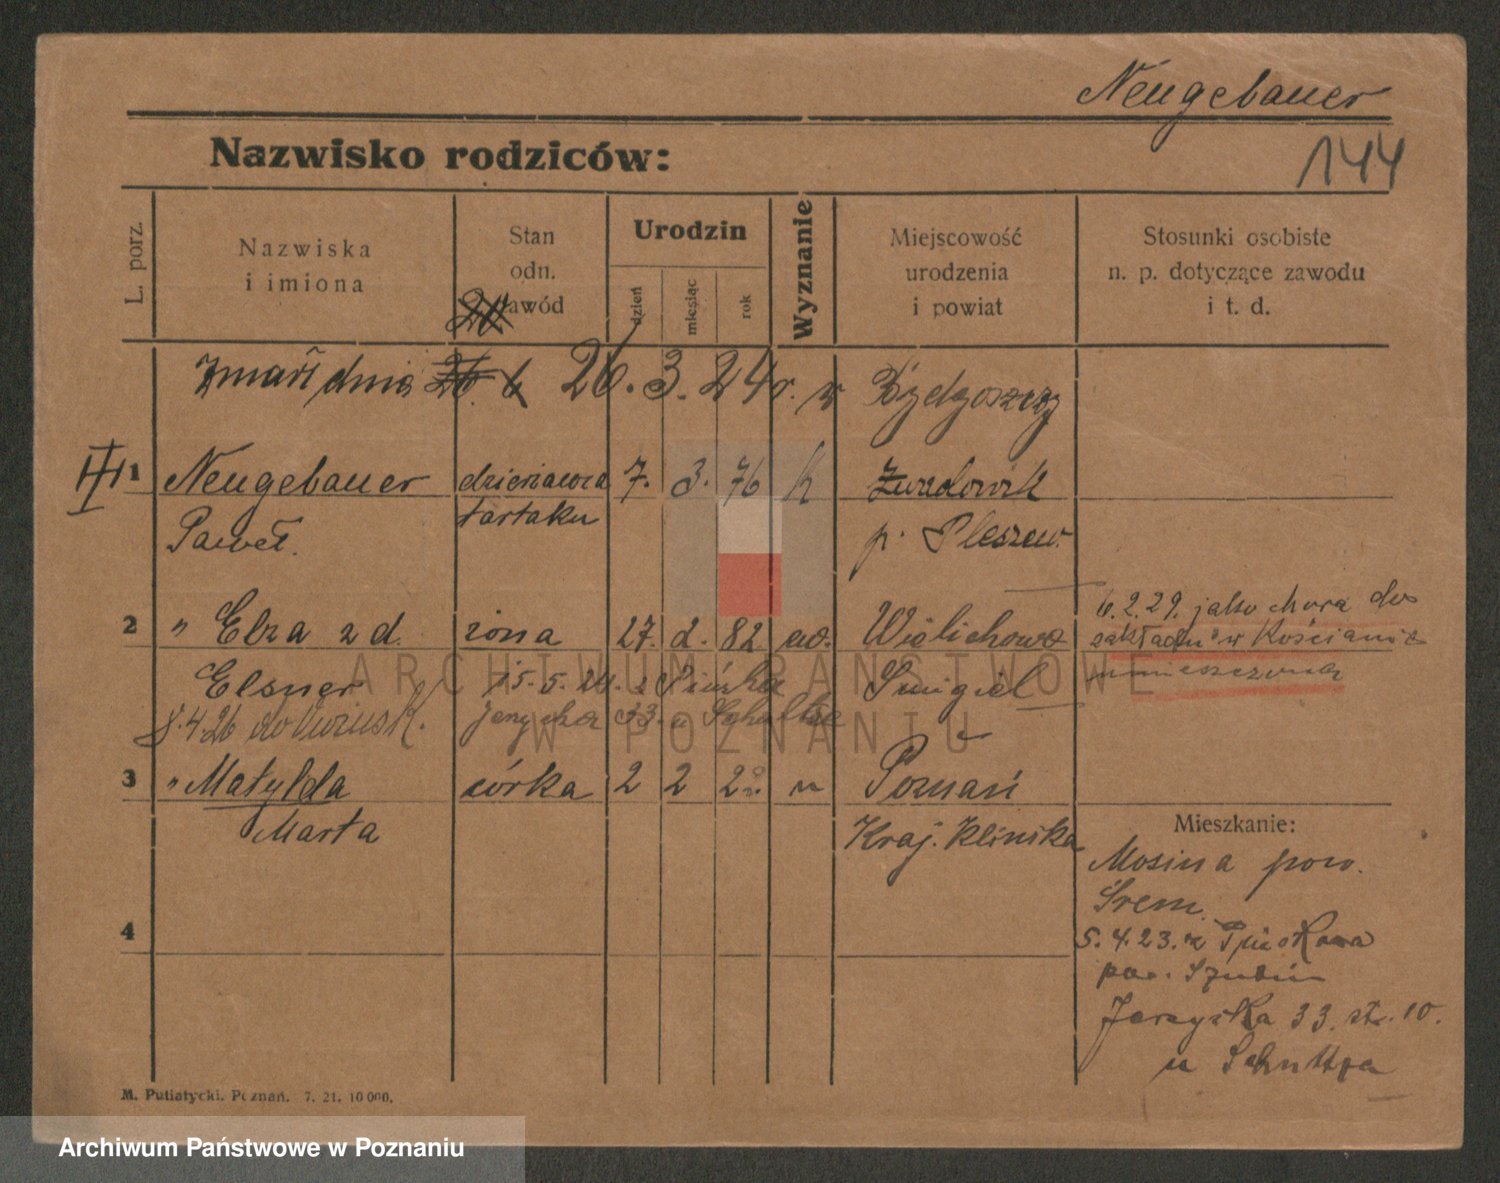 Neugebauer
144
Nazwisko rodziców:
L. porz.
Nazwiska
i imiona
Stan
odn.
zawód
Urodzin
dzień
miesiąc
rok
Wyznanie
Miejscowość
urodzenia
i powiat
Stosunki osobiste
n. p. dotyczące zawodu
i t. d.
Zmarł dnia 26. 3. 24 r. w Bydgoszczy
III
1 Neugebauer dzierżawca 7. 3. 76 k
Paweł. tartaku p. Pleszew
2 " Elza z d. żona 27. 2. 82 ew. Wielichowo
Elsner 15. 5. Śmigiel
8.4 26 do
33
6.2.29. jako chora do
zakładu w Kościanie
umieszczona
3 " Matylda córka 2 2 Poznań
Marta
Mieszkanie:
Mosina pow.
Śrem.
5. 4. 23. z
Szubin
Jerzycka 33. 10.
u Schultza
4
M. Putiatycki, Poznań. 7. 21. 10 000.
ARCHIWUM PAŃSTWOWE
W POZNANIU
Archiwum Państwowe w Poznaniu